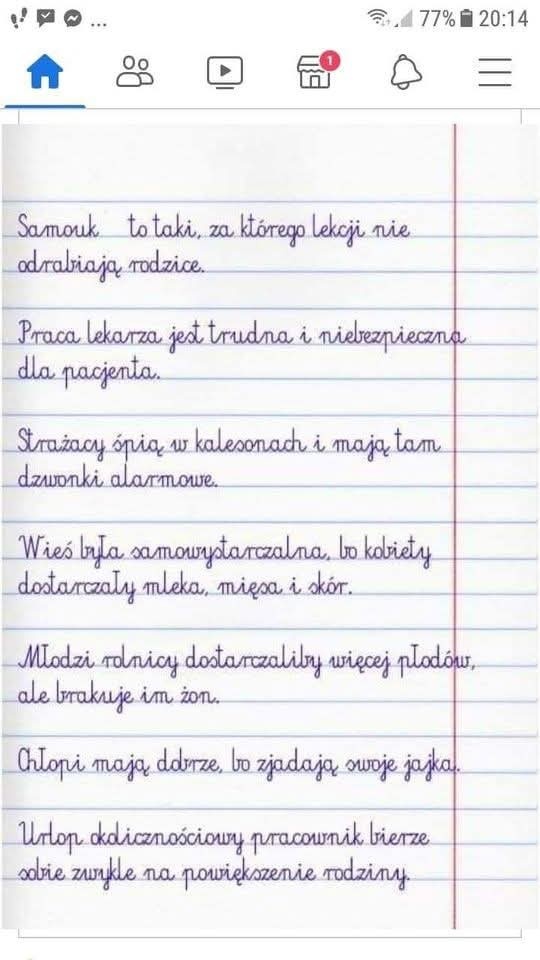 ... 77% 20:14
1
Samouk to taki, za którego lekcji nie
odrabiają rodzice.
Praca lekarza jest trudna i niebezpieczna
dla pacjenta.
Strażacy śpią w kalesonach i mają tam
dzwonki alarmowe.
Wieś była samowystarczalna, bo kobiety
dostarczały mleka, mięsa i skór.
Młodzi rolnicy dostarczaliby więcej płodów,
ale brakuje im żon.
Chłopi mają dobrze, bo zjadają swoje jajka.
Urlop okolicznościowy pracownik bierze
sobie zwykle na powiększenie rodziny.